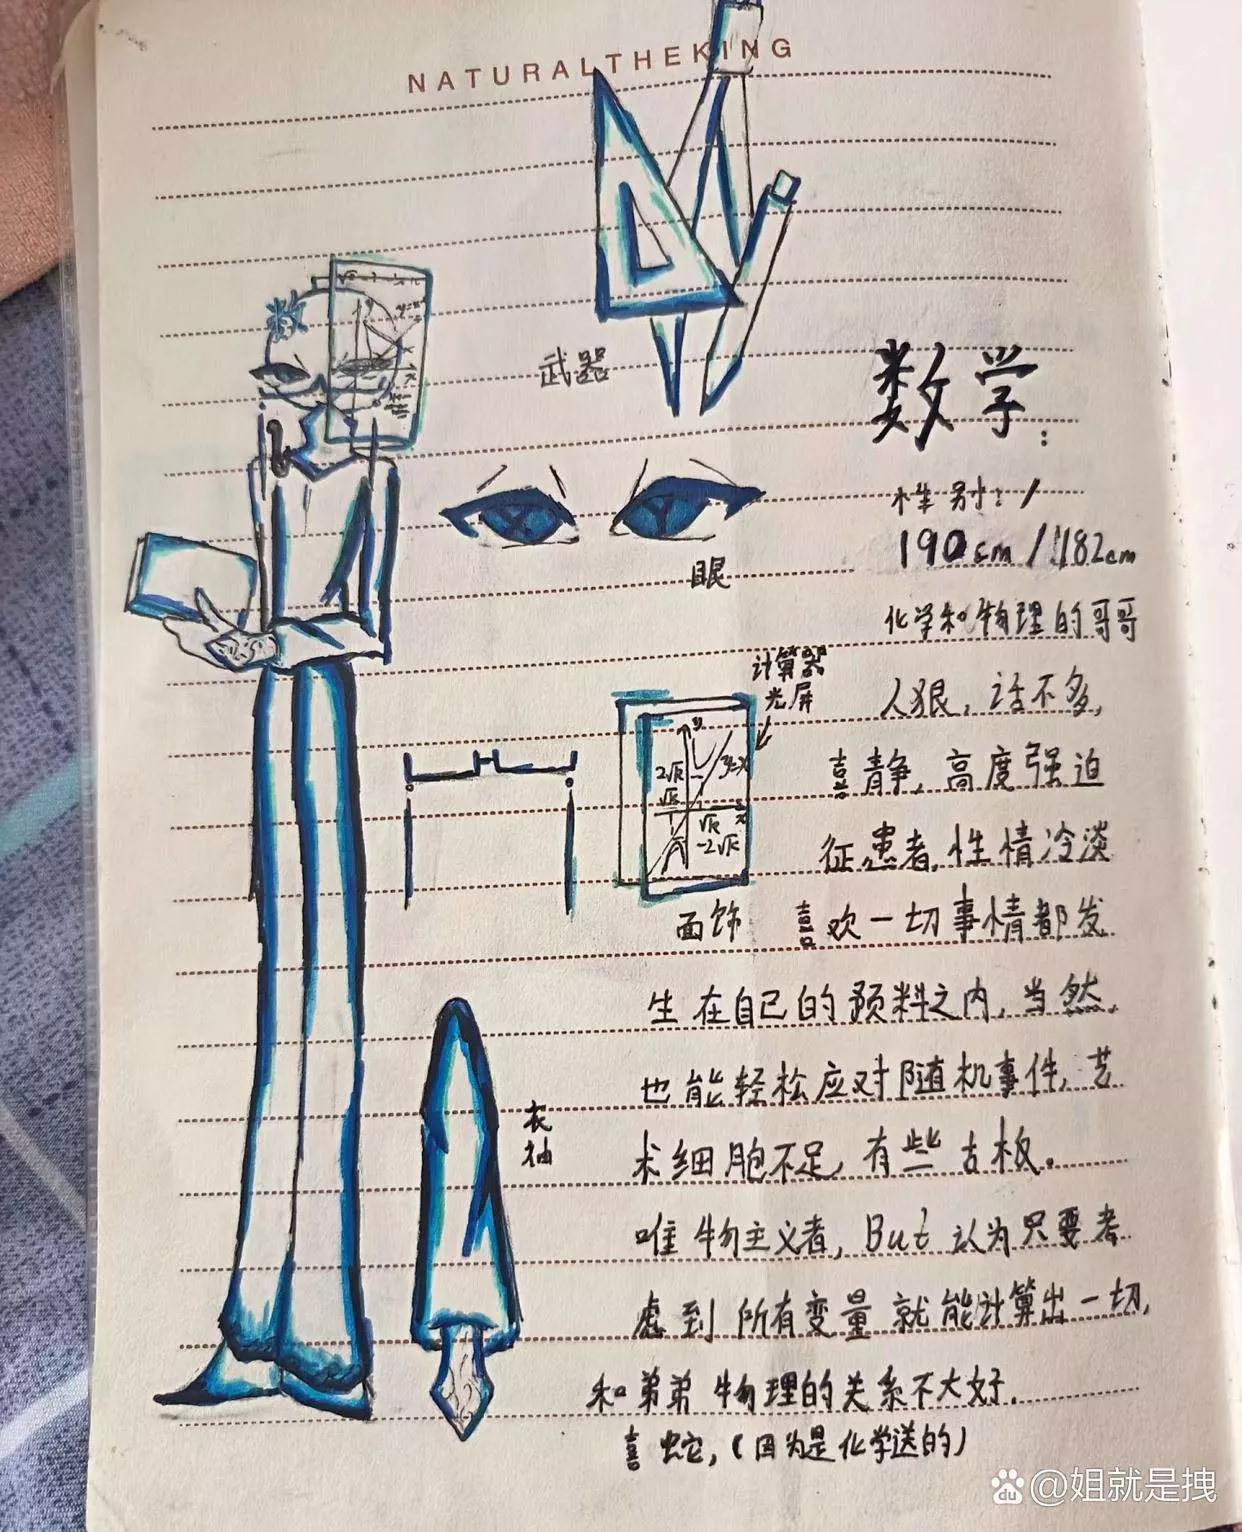 NATURALTHEKING
武器
数学:
性别: /
190cm / 182cm
眼
化学和物理的哥哥
计算器
光屏
人狠，话不多，
喜静，高度强迫
y
y=x
2√k
√k
x
√k
-2√k
征患者，性情冷淡
面饰
喜欢一切事情都发
生在自己的预料之内，当然，
也能轻松应对随机事件，艺
衣袖
术细胞不足，有些古板。
唯物主义者，But 认为只要考
虑到所有变量就能计算出一切，
和弟弟物理的关系不大好.
喜蛇，(因为是化学送的)
du @姐就是拽